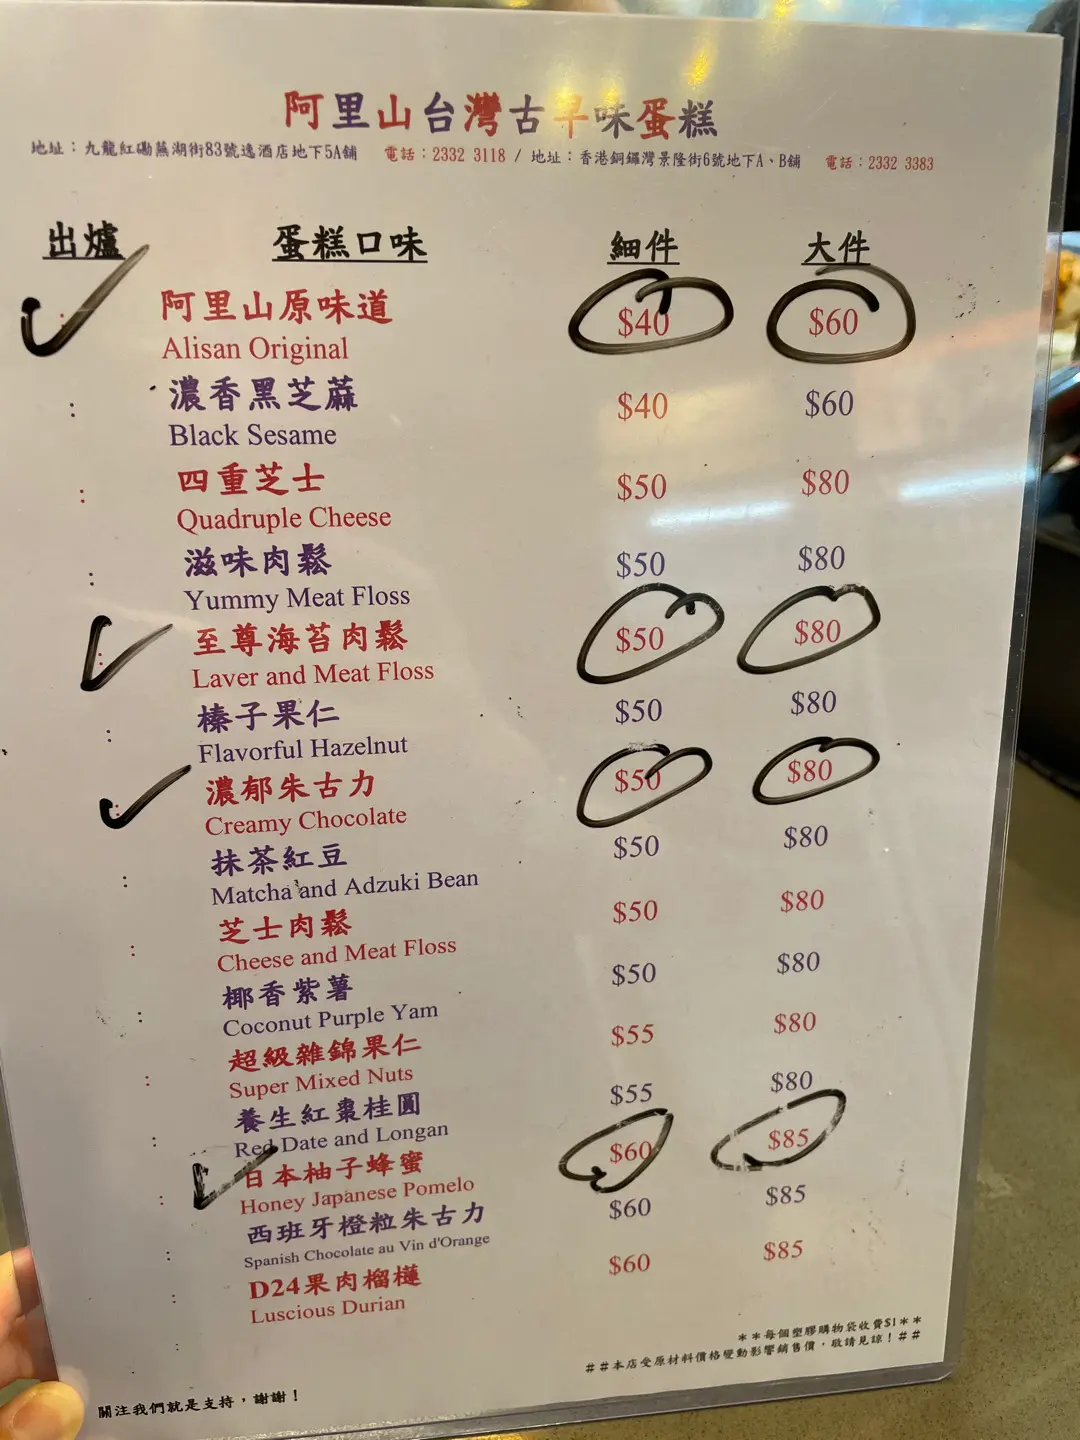 阿里山台灣古早味蛋糕
地址：九龍紅磡蕪湖街83號逸酒店地下5A舖 電話：2332 3118 / 地址：香港銅鑼灣景隆街6號地下A、B舖 電話：2332 3383
出爐 蛋糕口味 細件 大件
: 阿里山原味道 $40 $60
Alisan Original
: 濃香黑芝蔴 $40 $60
Black Sesame
: 四重芝士 $50 $80
Quadruple Cheese
: 滋味肉鬆 $50 $80
Yummy Meat Floss
: 至尊海苔肉鬆 $50 $80
Laver and Meat Floss
: 榛子果仁 $50 $80
Flavorful Hazelnut
: 濃郁朱古力 $50 $80
Creamy Chocolate
: 抹茶紅豆 $50 $80
Matcha and Adzuki Bean
: 芝士肉鬆 $50 $80
Cheese and Meat Floss
: 椰香紫薯 $50 $80
Coconut Purple Yam
: 超級雜錦果仁 $55 $80
Super Mixed Nuts
: 養生紅棗桂圓 $55 $80
Red Date and Longan
: 日本柚子蜂蜜 $60 $85
Honey Japanese Pomelo
: 西班牙橙粒朱古力 $60 $85
Spanish Chocolate au Vin d'Orange
: D24果肉榴槤 $60 $85
Luscious Durian
**每個塑膠購物袋收費$1**
##本店受原材料價格變動影響銷售價，敬請見諒！##
關注我們就是支持，謝謝！